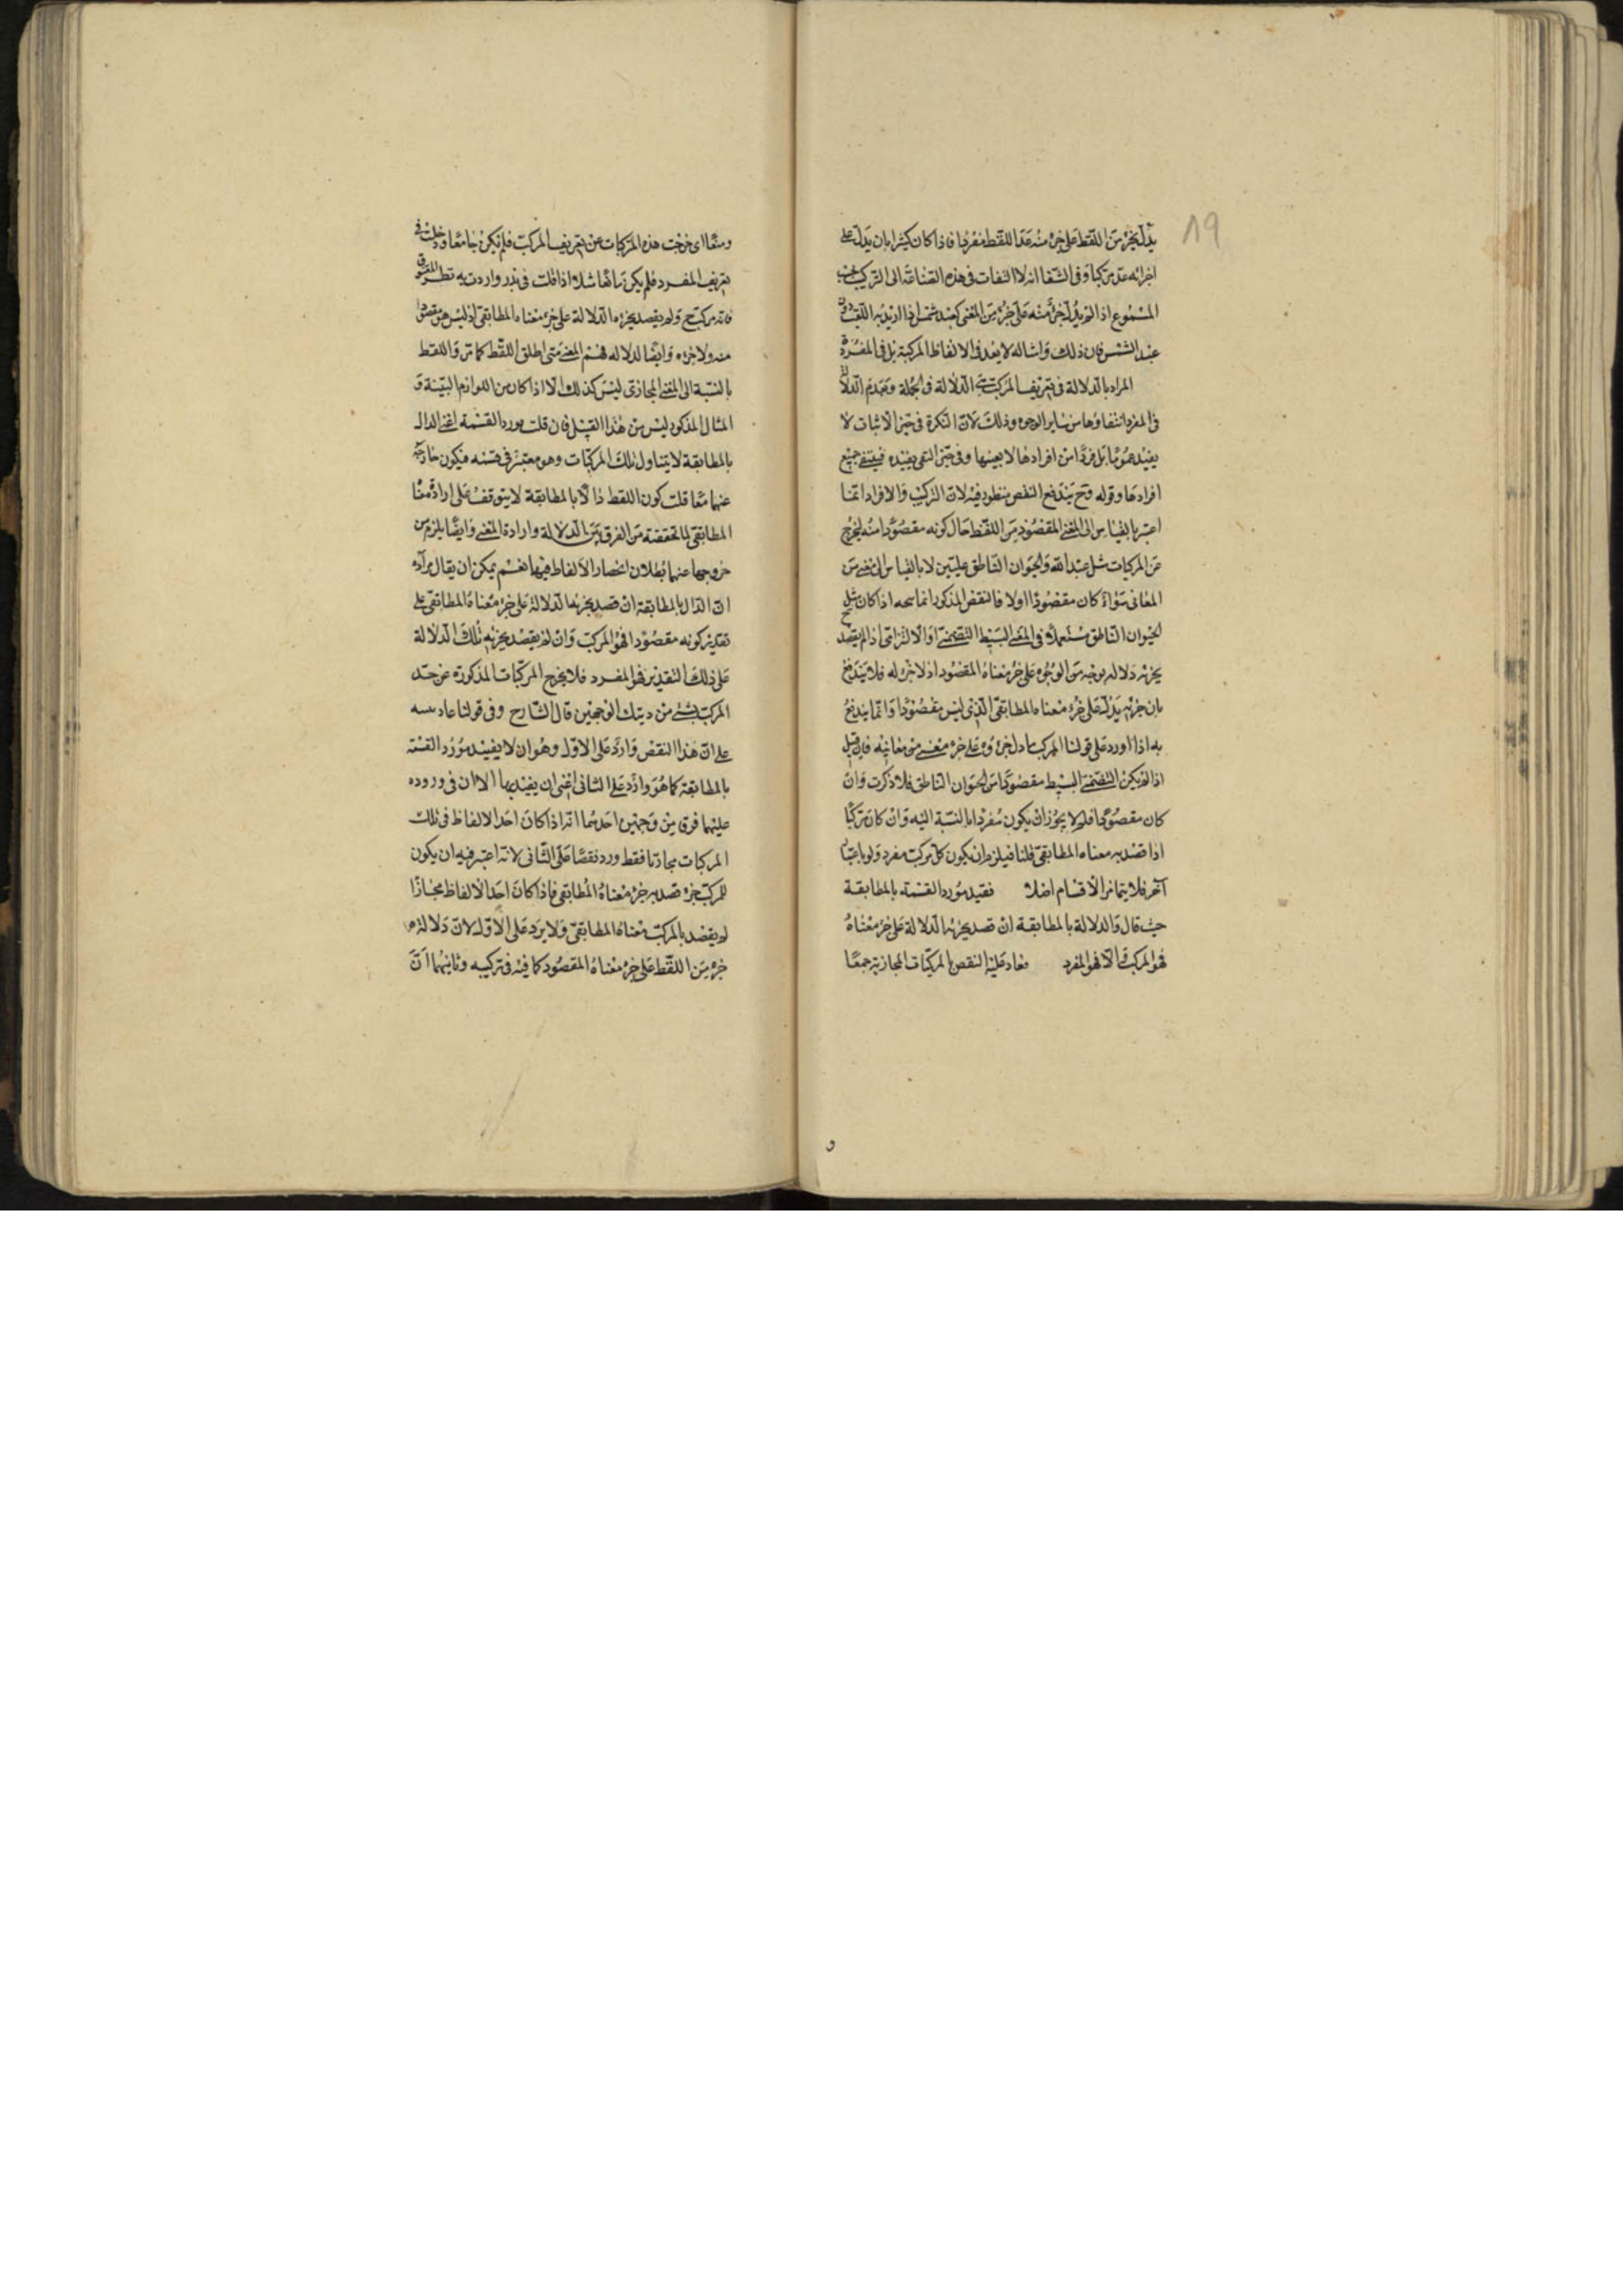 19
يدل بجزء من اللفظ على جزء منه عد اللفظ مفردا فاذا كان كثيرا بان يدل على
اجزائه عد مركبا وفى الشفا انه لا التفات فى هذه الصناعة الى التركيب بحسب
المسموع اذا لم يدل جزء منه على جزء من المعنى كعبد شمس اذا اريد به اللقب دون
عبد الشمس فان ذلك وامثاله لا يعد فى الالفاظ المركبة بل فى المفردة
المراد بالدلالة فى تعريف المركب هى الدلالة فى الجملة وبعدم الدلالة
فى المفرد انتفاؤها من ساير الوجوه وذلك لان النكرة فى حيز الاثبات لا
يفيد عموما بل فردا من افرادها لا بعينها وفى حيز النفى يفيده فينتفى جميع
افرادها وقوله وح يندفع النقض منظور فيه لان التركيب والافراد انما
اعتبر بالقياس الى المعنى المقصود من اللفظ حال كونه مقصودا منه ليخرج
عن المركبات مثل عبد الله والحيوان الناطق علمين لا بالقياس الى معنى من
المعانى سواء كان مقصودا اولا فالنقض المذكور انما يتجه اذا كان مثل
الحيوان الناطق مستعملا فى المعنى البسيط التضمنى او الالتزامى اذ لم يقصد ح
بجزئه دلالة بوجه من الوجوه على جزء معناه المقصود اذ لا جزء له فلا يندفع
بان جزئه يدل على جزء معناه المطابقى الذى ليس مقصودا وانما يندفع
به اذا اورد على قولنا المركب ما دل جزؤه على جزء معنى من معانيه فان قيل
اذا لم يكن التضمنى البسيط مقصودا من الحيوان الناطق فلا ذكرت وان
كان مقصودا فلم لا يجوز ان يكون مفردا بالنسبة اليه وان كان مركبا
اذا قصد به معناه المطابقى قلنا فيلزم ان يكون كل مركب مفرد ولو باعتبار
آخر فلا يتمايز الاقسام اصلا فقيد مورد القسمة بالمطابقة
حيث قال والدلالة بالمطابقة ان قصد بجزئه الدلالة على جزء معناه
فهو المركب والا فهو المفرد فعاد عليه النقض بالمركبات المجازية جمعا
و
ومنعا اى خرجت هذه المركبات عن تعريف المركب فلم يكن جامعا ودخلت فى
تعريف المفرد فلم يكن مانعا مثلا اذا قلت فى بدر واردت به
فانه مركب ح ولم يقصد بجزءه الدلالة على جزء معناه المطابقى اذ ليس هو مقصودا
منه ولا جزءه وايضا الدلالة فهم المعنى متى اطلق اللفظ كما مر واللفظ
بالنسبة الى المعنى المجازى ليس كذلك الا اذا كان من اللوازم البينة و
المثال المذكور ليس من هذا القبيل فان قلت مورد القسمة اعنى الدال
بالمطابقة لا يتناول تلك المركبات وهو معتبر فى قسمه فيكون خارجة
عنهما معا قلت كون اللفظ دالا بالمطابقة لا يتوقف على ارادة معناه
المطابقى لما تحققته من الفرق بين الدلالة وارادة المعنى وايضا يلزم من
خروجها عنهما بطلان انحصار الالفاظ فيهما نعم يمكن ان يقال مراده
ان الدال بالمطابقة ان قصد بجزئه الدلالة على جزء معناه المطابقى على
تقدير كونه مقصودا فهو المركب وان لم يقصد بجزئه تلك الدلالة
على ذلك التقدير فهو المفرد فلا يخرج المركبات المذكورة عن حد
المركب بشئ من دينك الوجهين قال الشارح وفى قولنا عاد
على ان هذا النقض وارد على الاول وهو ان لا يقيد مورد القسمة
بالمطابقة كما هو وارد على الثانى اعنى ان يقيد بها الا ان فى وروده
عليهما فرق من وجهين احدهما انه اذا كان احد الالفاظ فى تلك
المركبات مجازيا فقط ورد نقضا على الثانى لانه اعتبر فيه ان يكون
للمركب جزء قصد به جزء معناه المطابقى فاذا كان احد الالفاظ مجازا
لم يقصد بالمركب معناه المطابقى ولا يرد على الاول لان دلالة
جزء من اللفظ على جزء معناه المقصود كافية فى تركيبه وثانيهما ان